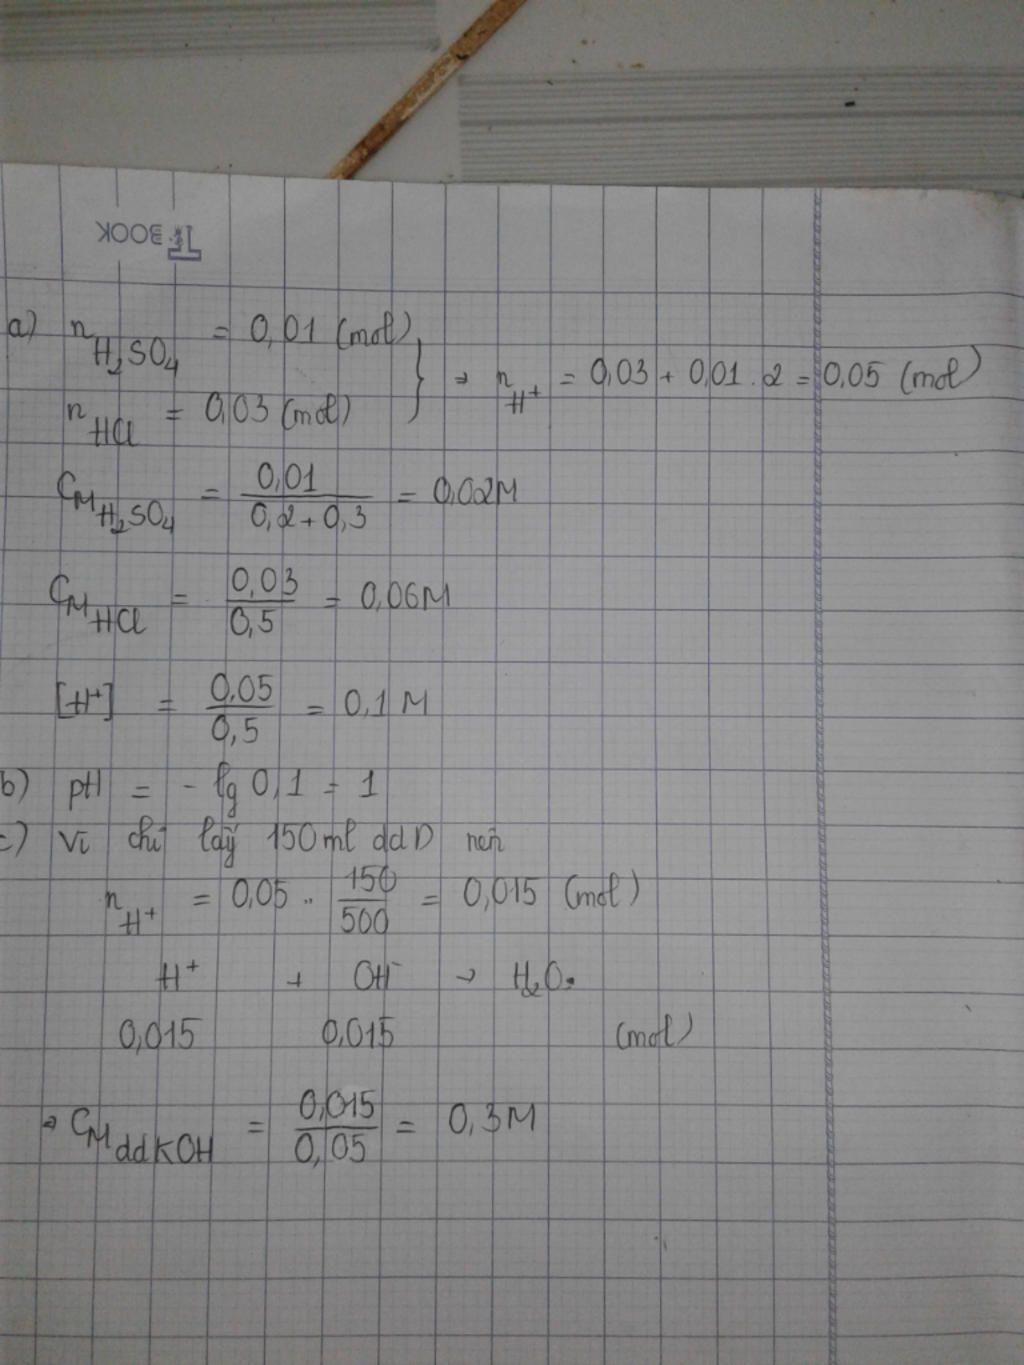 TF BOOK
a) n H₂SO₄ = 0,01 (mol)
n HCl = 0,03 (mol) } → n H⁺ = 0,03 + 0,01 . 2 = 0,05 (mol)
C_M H₂SO₄ = 0,01 / 0,2 + 0,3 = 0,02M
C_M HCl = 0,03 / 0,5 = 0,06M
[H⁺] = 0,05 / 0,5 = 0,1 M
b) pH = - lg 0,1 = 1
c) Vì chỉ lấy 150 ml dd D nên
n H⁺ = 0,05 . 150 / 500 = 0,015 (mol)
H⁺ + OH⁻ → H₂O
0,015 0,015 (mol)
→ C_M dd KOH = 0,015 / 0,05 = 0,3M